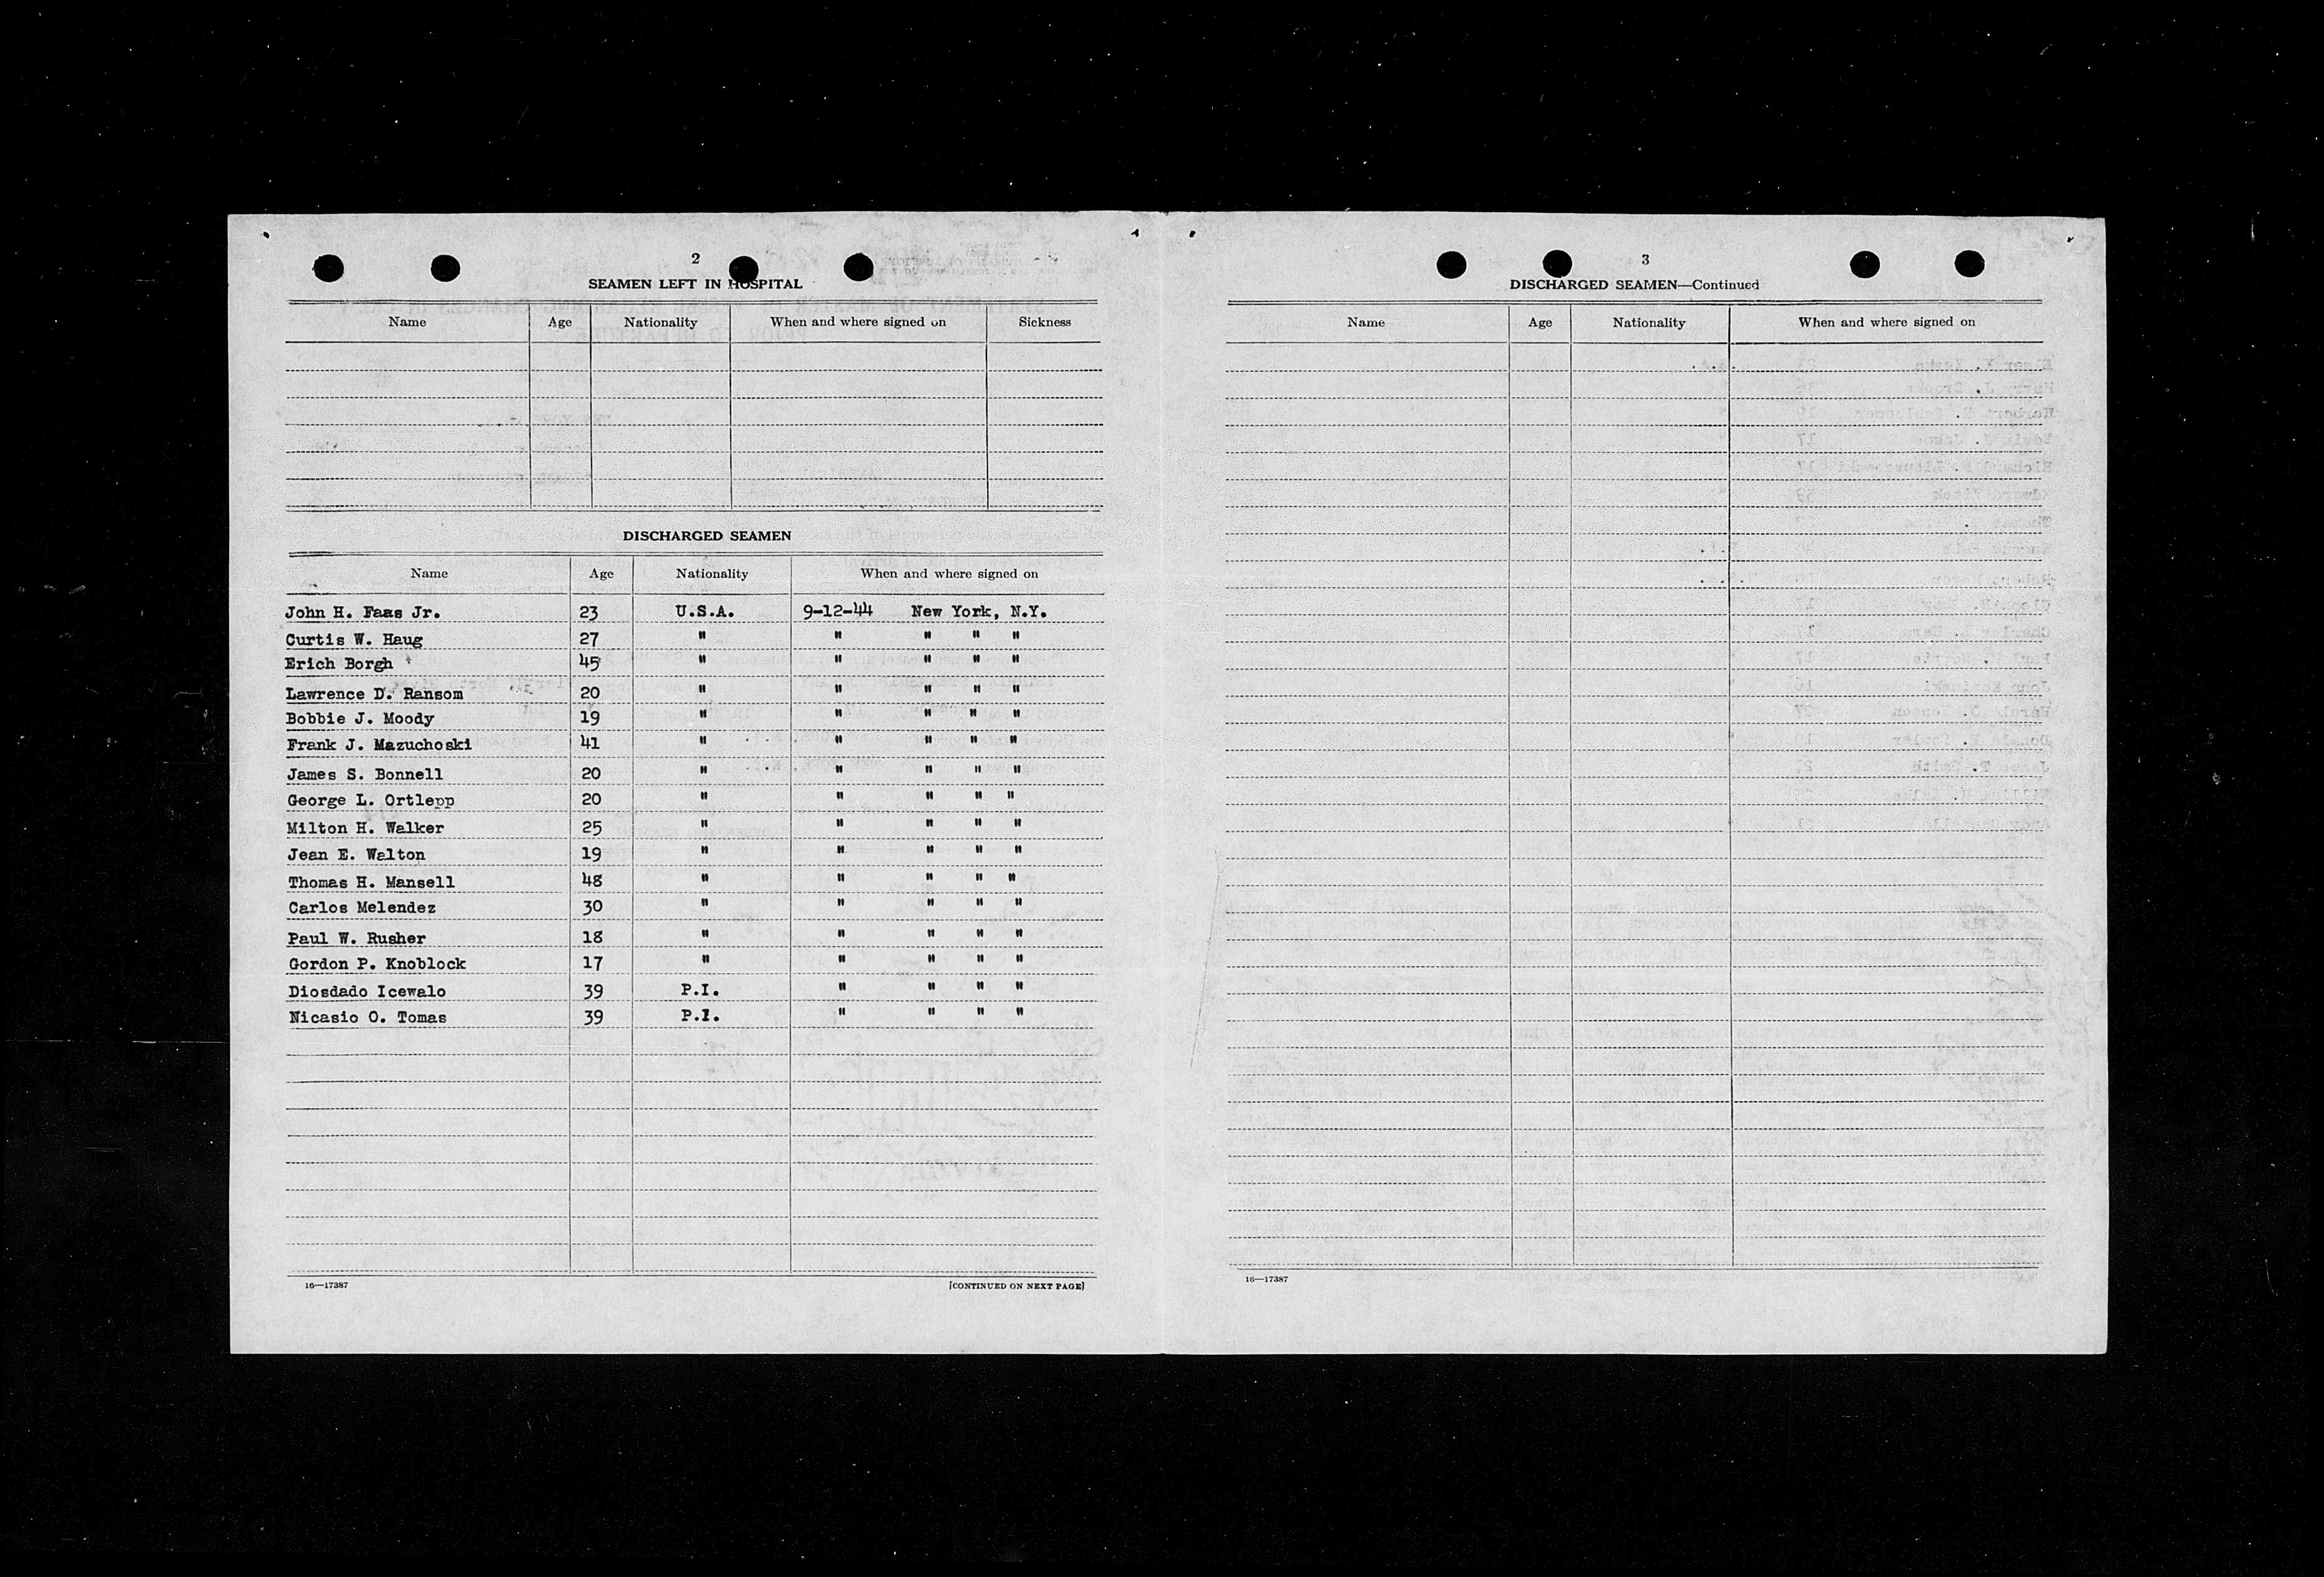 2
SEAMEN LEFT IN HOSPITAL
Name Age Nationality When and where signed on Sickness
DISCHARGED SEAMEN
Name Age Nationality When and where signed on
John H. Faas Jr. 23 U.S.A. 9-12-44 New York, N.Y.
Curtis W. Haug 27 " " " " "
Erich Borgh 45 " " " " "
Lawrence D. Ransom 20 " " " " "
Bobbie J. Moody 19 " " " " "
Frank J. Mazuchoski 41 " " " " "
James S. Bonnell 20 " " " " "
George L. Ortlepp 20 " " " " "
Milton H. Walker 25 " " " " "
Jean E. Walton 19 " " " " "
Thomas H. Mansell 48 " " " " "
Carlos Melendez 30 " " " " "
Paul W. Rusher 18 " " " " "
Gordon P. Knoblock 17 " " " " "
Diosdado Icewalo 39 P.I. " " " "
Nicasio O. Tomas 39 P.I. " " " "
16—17387 [CONTINUED ON NEXT PAGE]
3
DISCHARGED SEAMEN—Continued
Name Age Nationality When and where signed on
16—17387